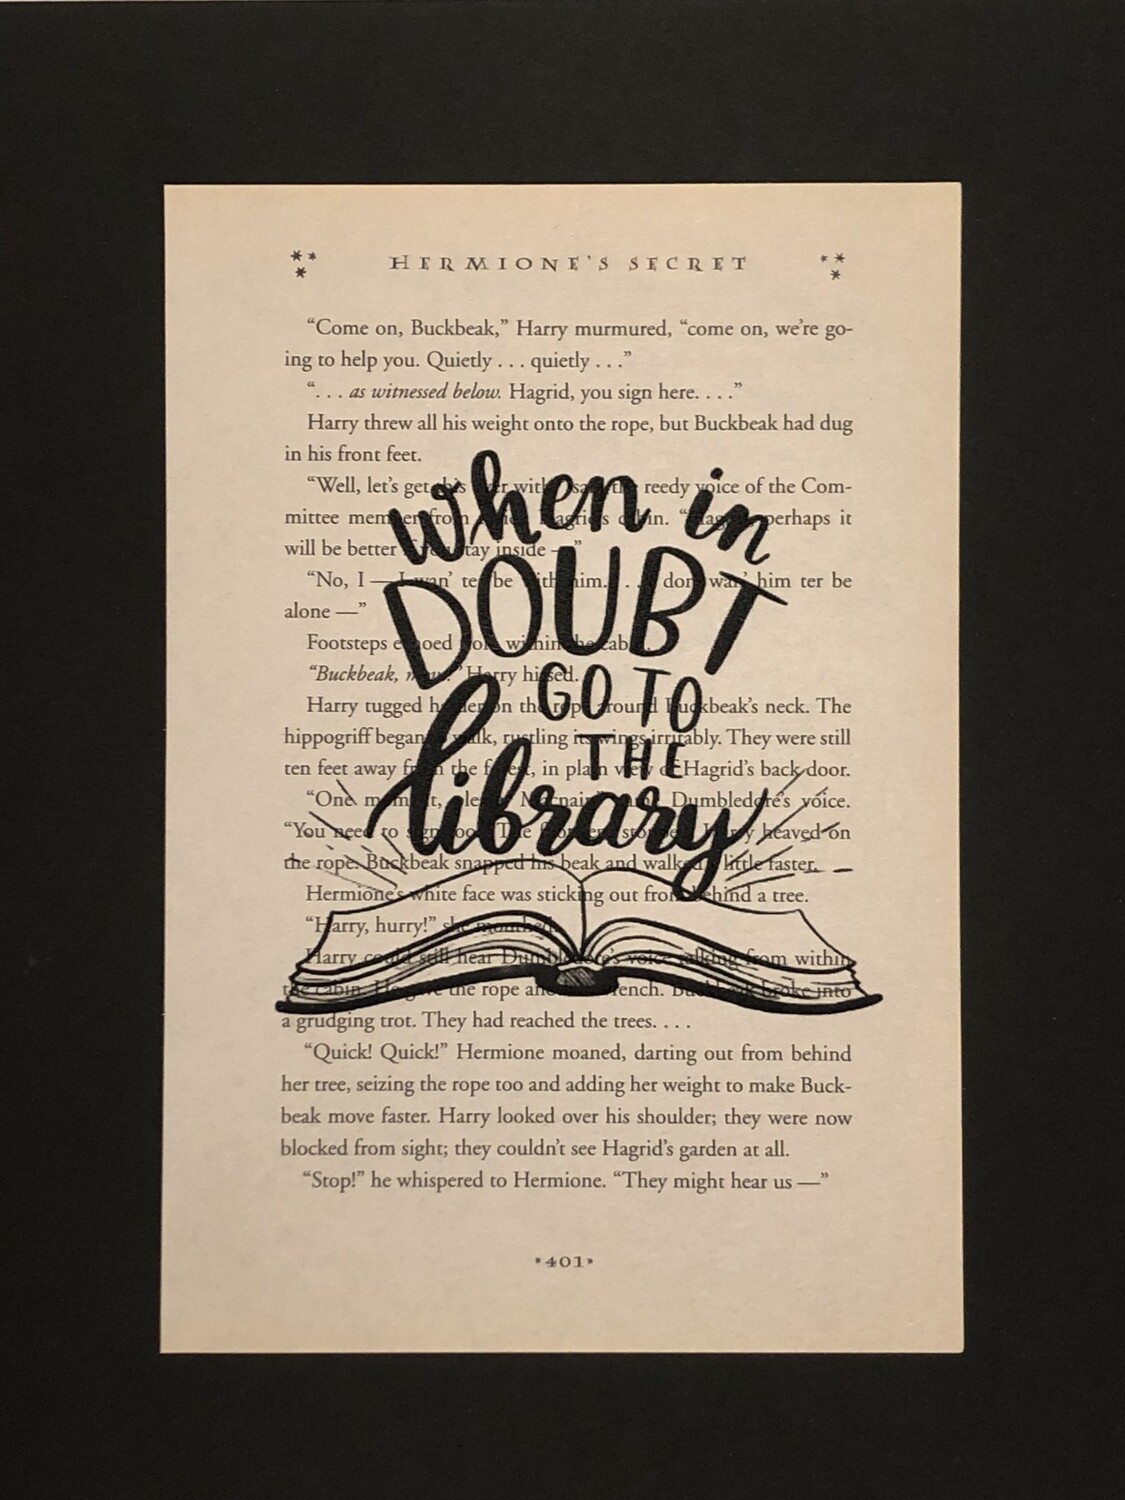 HERMIONE'S SECRET
“Come on, Buckbeak,” Harry murmured, “come on, we’re go-
ing to help you. Quietly . . . quietly . . .”
“. . . as witnessed below. Hagrid, you sign here. . . .”
Harry threw all his weight onto the rope, but Buckbeak had dug
in his front feet.
“Well, let’s get reedy voice of the Com-
mittee perhaps it
will be better inside —”
“No, I — be him ter be
alone —”
Footsteps within
“Buckbeak, Harry hissed.
Harry tugged on the rope around Buckbeak’s neck. The
hippogriff began rustling its wings irritably. They were still
ten feet away the in plain view of Hagrid’s back door.
“One Dumbledore’s voice.
“You need to Harry heaved on
the rope. Buckbeak snapped his beak and walked little faster.
Hermione’s white face was sticking out from behind a tree.
“Harry, hurry!” she mouthed.
Harry could still hear Dumbledore’s voice talking from within
the cabin. He gave the rope another wrench. Buckbeak broke into
a grudging trot. They had reached the trees. . . .
“Quick! Quick!” Hermione moaned, darting out from behind
her tree, seizing the rope too and adding her weight to make Buck-
beak move faster. Harry looked over his shoulder; they were now
blocked from sight; they couldn’t see Hagrid’s garden at all.
“Stop!” he whispered to Hermione. “They might hear us —”
*401*
when in
DOUBT
GO TO
THE
library